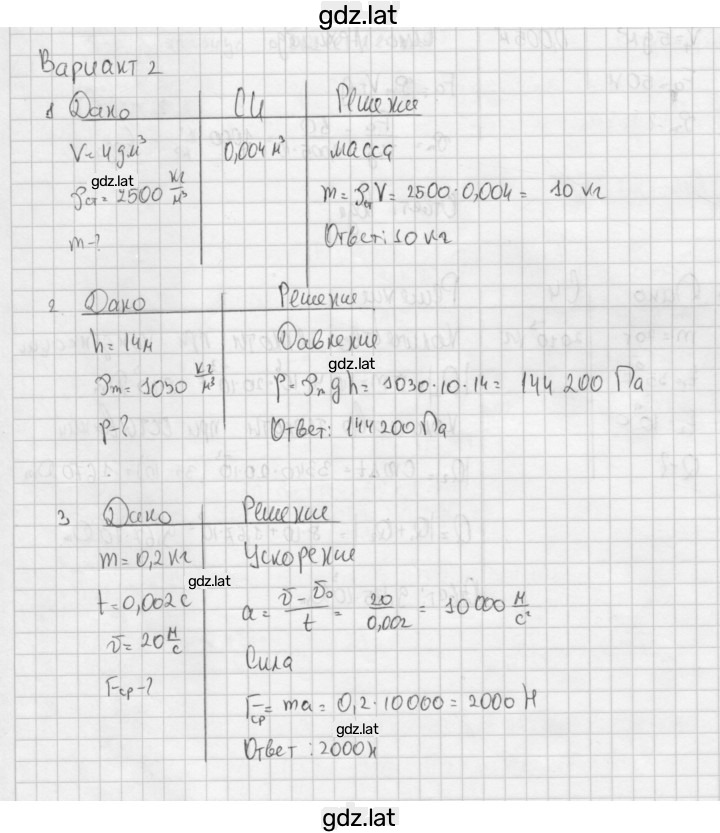 gdz.lat
Вариант 2
1 Дано СИ Решение
V=4дм³ 0,004 м³ масса
gdz.lat
ρст=2500 кг/м³ m=ρстV=2500·0,004= 10 кг
m-? Ответ: 10 кг
2 Дано Решение
h=14м Давление
gdz.lat
ρм=1030 кг/м³ p=ρм g h= 1030·10·14= 144 200 Па
p-? Ответ: 144200 Па
gdz.lat
3 Дано Решение
m=0,2 кг Ускорение
gdz.lat
t=0,002с a= v-v₀/t = 20/0,002 = 10 000 м/с²
v=20 м/с
gdz.lat
Сила
Fср-? Fср= ma= 0,2·10000= 2000 Н
gdz.lat
Ответ: 2000н
gdz.lat